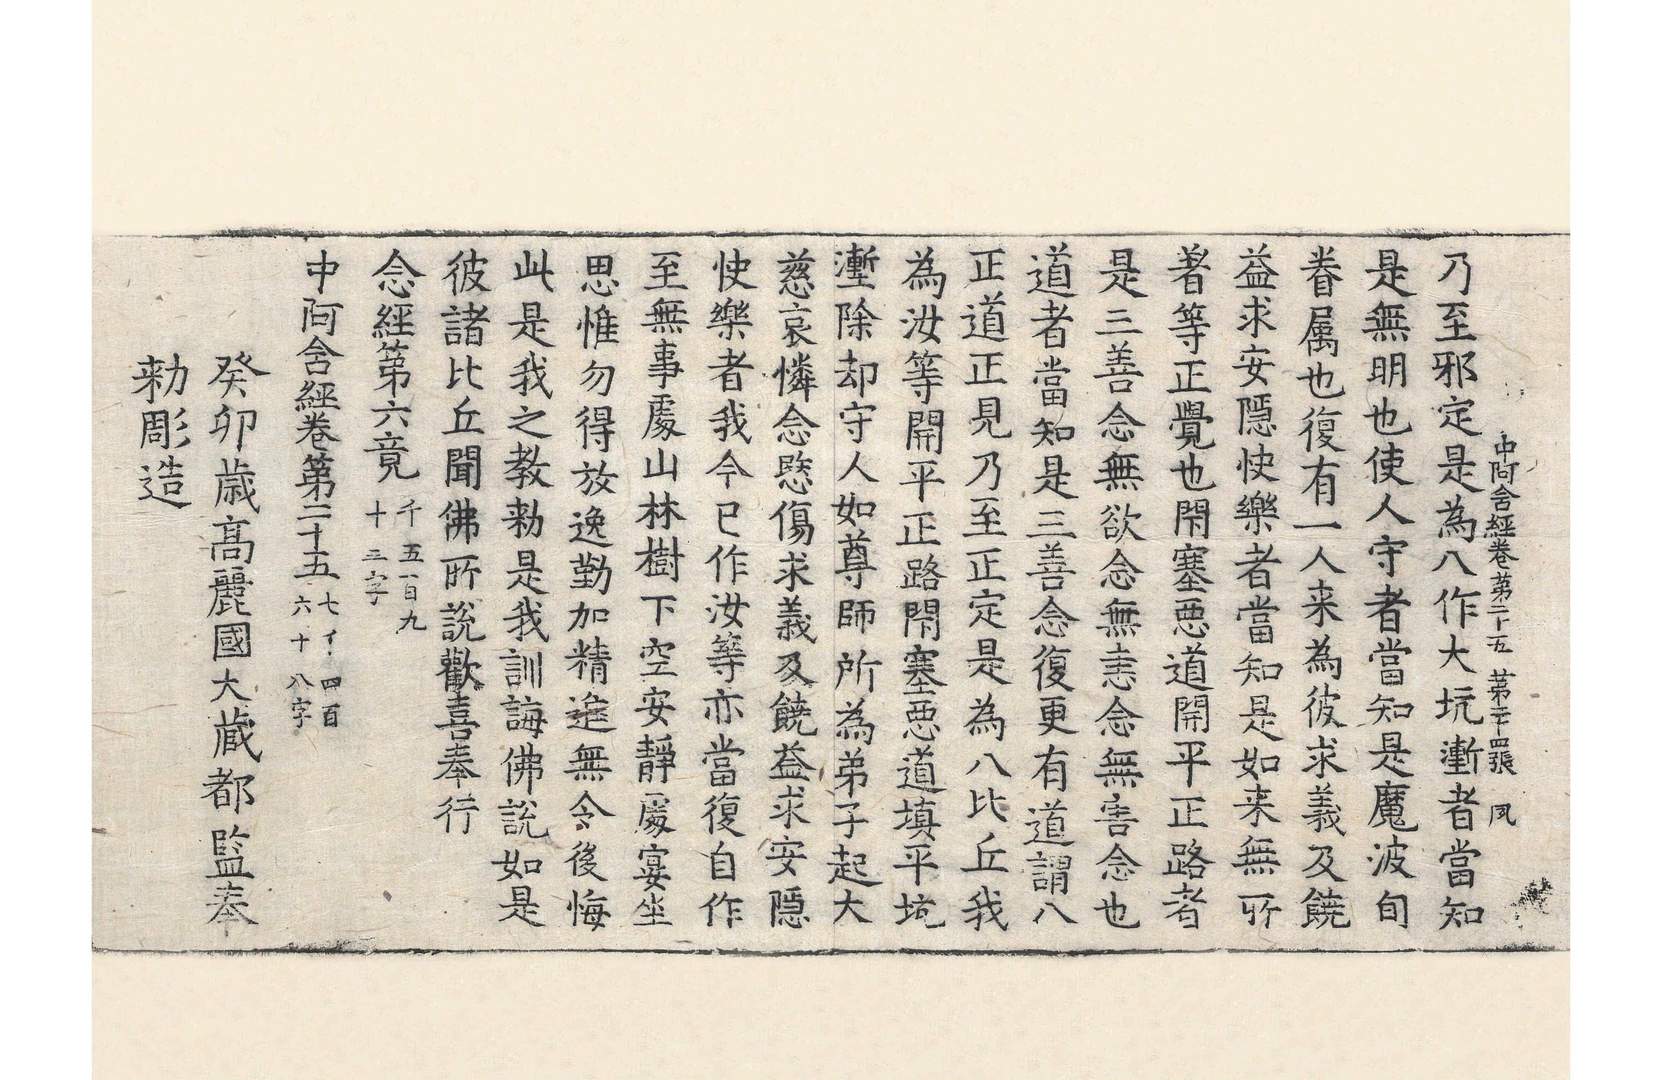 中阿含經卷第二十五 第二十四張 夙
乃至邪定是為八作大坑壍者當知
是無明也使人守者當知是魔波旬
眷属也復有一人来為彼求義及饒
益求安隱快樂者當知是如来無所
著等正覺也閇塞悪道開平正路者
是三善念無欲念無恚念無害念也
道者當知是三善念復更有道謂八
正道正見乃至正定是為八比丘我
為汝等開平正路閇塞悪道填平坑
壍除却守人如尊師所為弟子起大
慈哀憐念愍傷求義及饒益求安隱
快樂者我今已作汝等亦當復自作
至無事處山林樹下空安靜處宴坐
思惟勿得放逸勤加精進無令後悔
此是我之教勑是我訓誨佛說如是
彼諸比丘聞佛所說歡喜奉行
念經第六竟 千五百九十三字
中阿含經卷第二十五 七千四百六十八字
癸卯歳高麗國大蔵都監奉
勑彫造